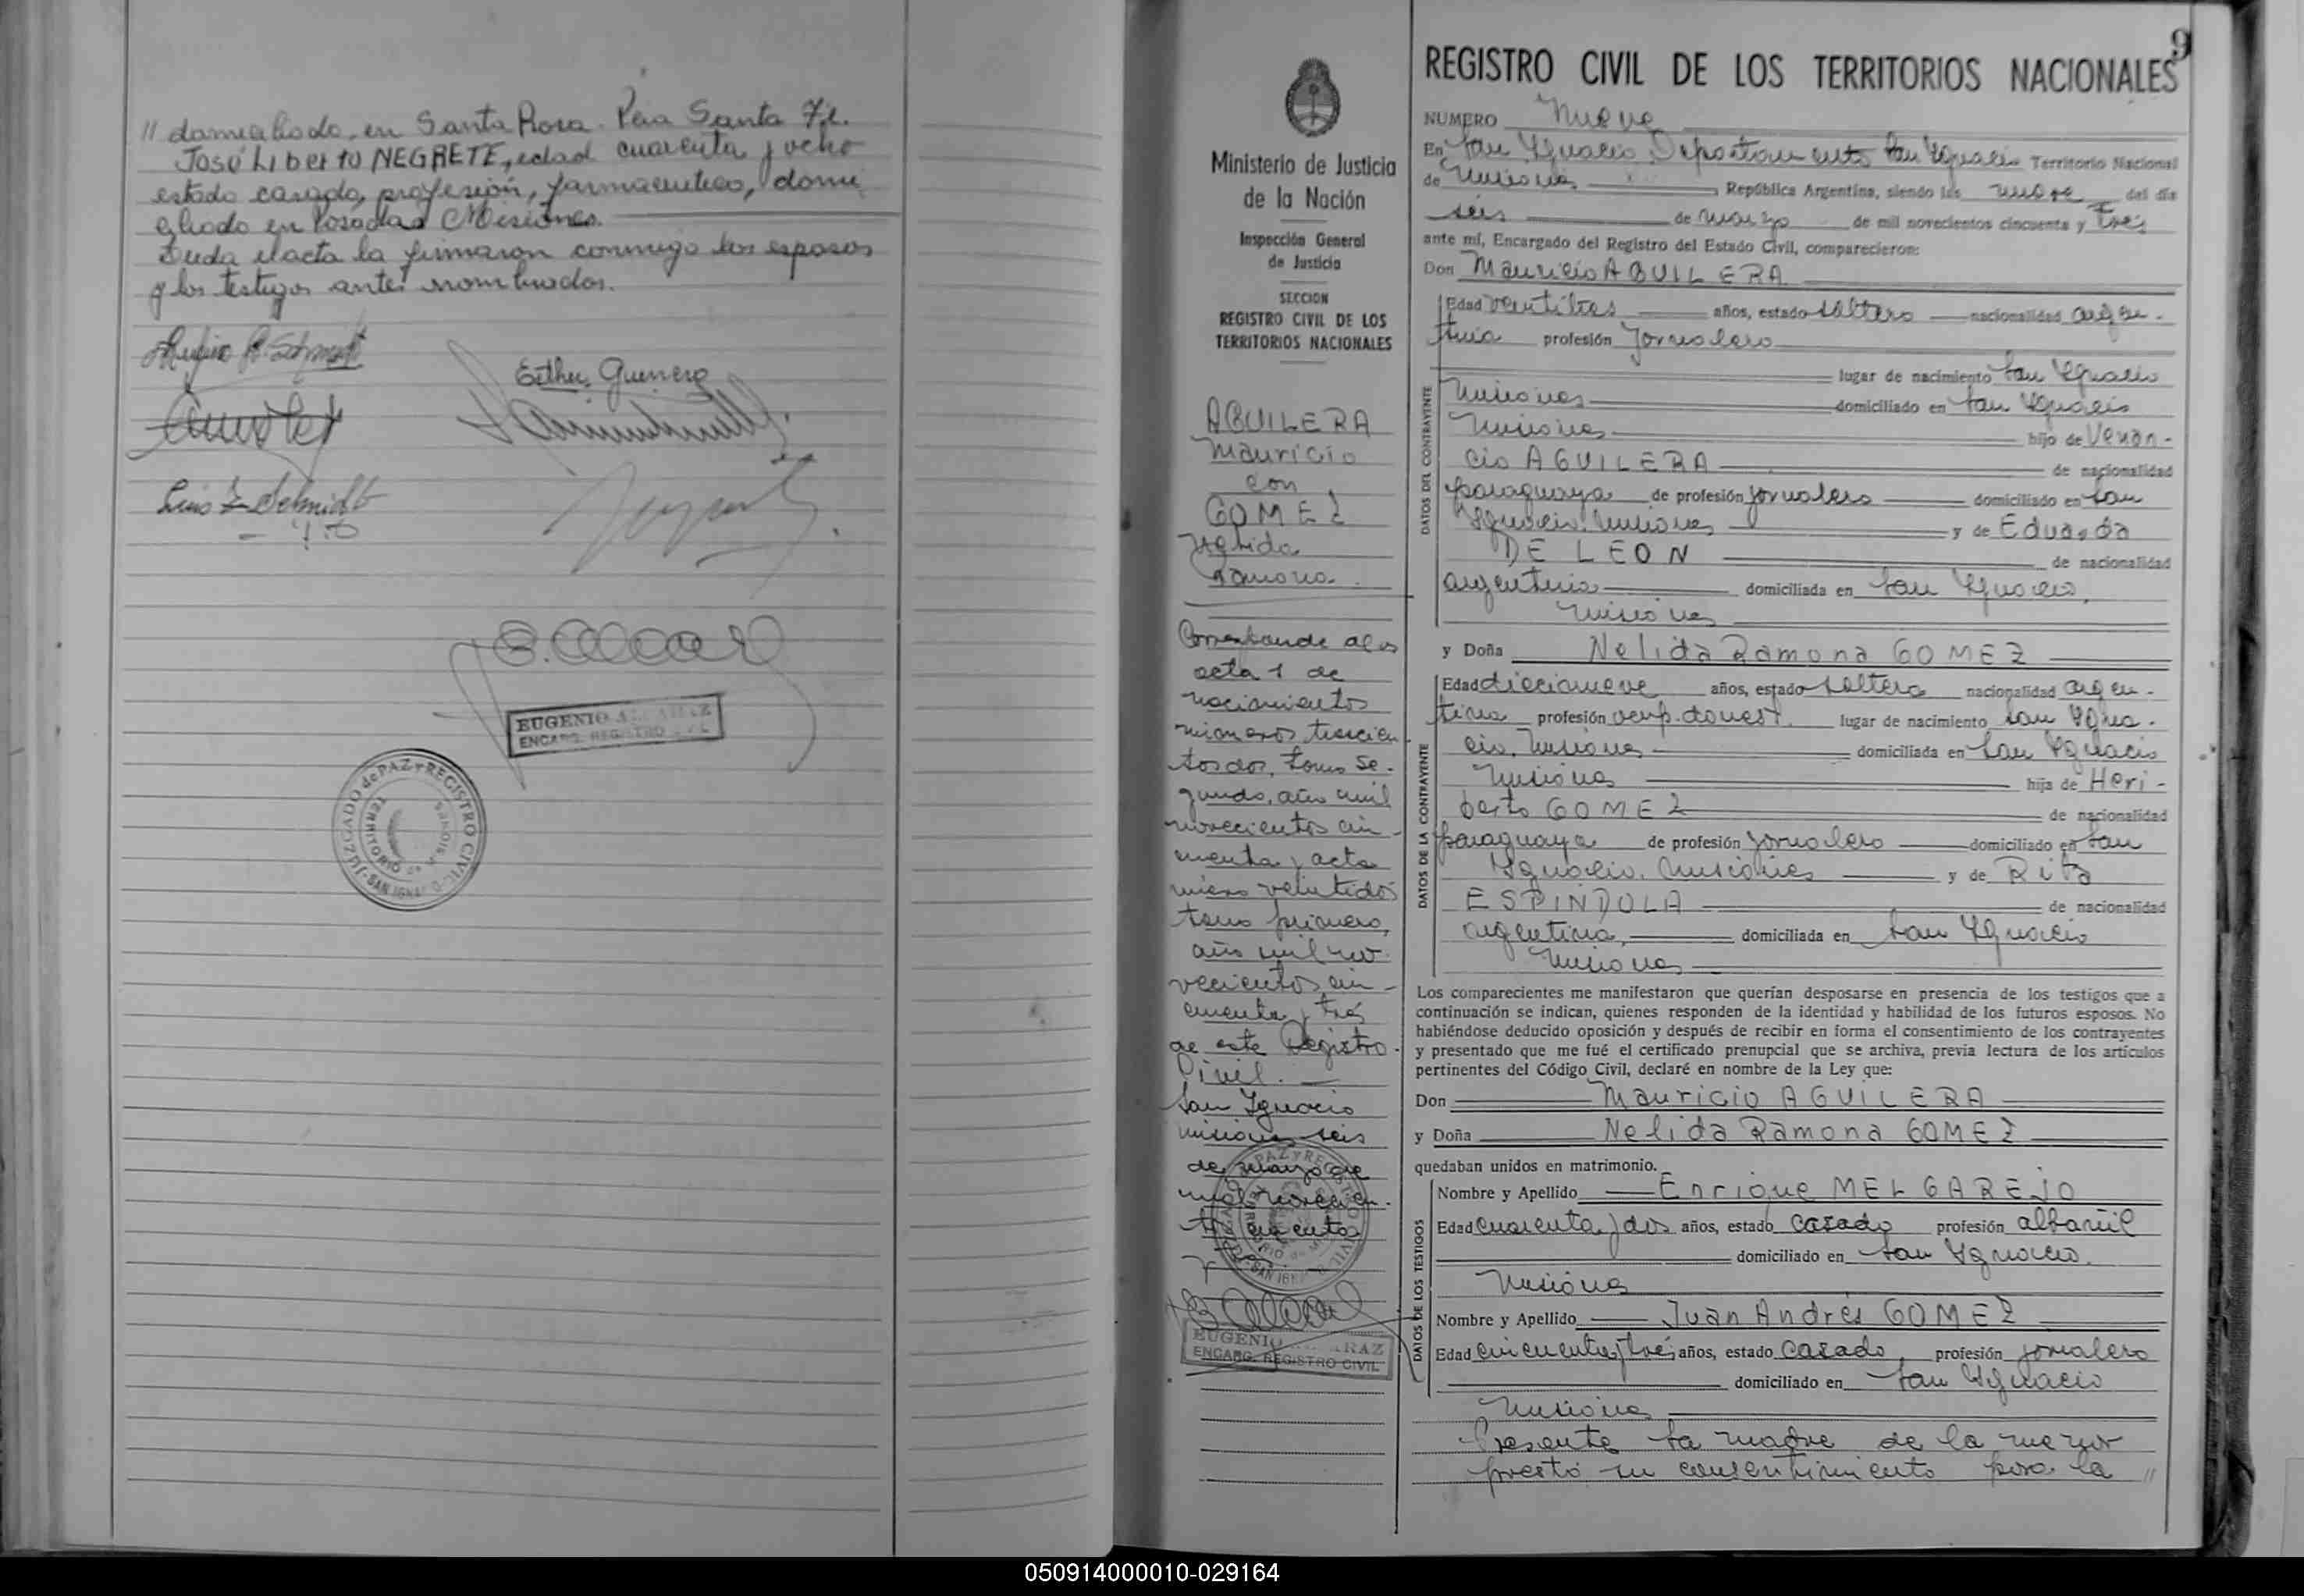 // domiciliado, en Santa Rosa. Pcia Santa Fé.
José Liberto NEGRETE, edad cuarenta y ocho
estado casado, profesión, farmaceutico, domi
ciliado en Posadas Misiones.
Leida el acta la firmaron conmigo los esposos
y los testigos antes nombrados.
Esther Guerrero
Luis Schmidt
EUGENIO ALCARAZ
ENCARG. REGISTRO CIVIL
JUZGADO de PAZ y REGISTRO CIVIL - SAN IGNACIO
TERRITORIO de MISIONES
9
Ministerio de Justicia
de la Nación
Inspección General
de Justicia
SECCION
REGISTRO CIVIL DE LOS
TERRITORIOS NACIONALES
AGUILERA
Mauricio
con
GOMEZ
Nélida
Ramona.
Corresponde al os
acta 1 de
nacimientos
números trescien
tos dos, tomo se-
gundo, año mil
novecientos cin-
cuenta y acta
veintidós
tomo primero,
año mil no-
vecientos cin-
cuenta y tres
de este Registro
Civil.
San Ignacio
Misiones seis
de marzo de
mil novecien-
tos cincuenta
y
EUGENIO ALCARAZ
ENCARG. REGISTRO CIVIL
REGISTRO CIVIL DE LOS TERRITORIOS NACIONALES
NUMERO Nueve
En San Ignacio, Departamento San Ignacio Territorio Nacional
de Misiones, República Argentina, siendo las nueve del día
seis de marzo de mil novecientos cincuenta y tres
ante mí, Encargado del Registro del Estado Civil, comparecieron:
Don Mauricio AGUILERA
DATOS DEL CONTRAYENTE
Edad veintitres años, estado soltero nacionalidad argen-
tina profesión Jornalero
lugar de nacimiento San Ignacio
Misiones domiciliado en San Ignacio
Misiones hijo de Venan-
cio AGUILERA de nacionalidad
paraguaya de profesión jornalero domiciliado en San
Ignacio, Misiones y de Eduarda
DE LEON de nacionalidad
argentina domiciliada en San Ignacio,
Misiones
y Doña Nelida Ramona GOMEZ
DATOS DE LA CONTRAYENTE
Edad diecinueve años, estado soltera nacionalidad argen-
tina profesión ocup. domest. lugar de nacimiento San Igna-
cio, Misiones domiciliada en San Ignacio
Misiones hija de Heri-
berto GOMEZ de nacionalidad
paraguaya de profesión jornalero domiciliado en San
Ignacio, Misiones y de Rita
ESPINDOLA de nacionalidad
argentina, domiciliada en San Ignacio
Misiones
Los comparecientes me manifestaron que querían desposarse en presencia de los testigos que a
continuación se indican, quienes responden de la identidad y habilidad de los futuros esposos. No
habiéndose deducido oposición y después de recibir en forma el consentimiento de los contrayentes
y presentado que me fué el certificado prenupcial que se archiva, previa lectura de los artículos
pertinentes del Código Civil, declaré en nombre de la Ley que:
Don Mauricio AGUILERA
y Doña Nelida Ramona GOMEZ
quedaban unidos en matrimonio.
DATOS DE LOS TESTIGOS
Nombre y Apellido Enrique MELGAREJO
Edad cuarenta y dos años, estado casado profesión albañil
domiciliado en San Ignacio.
Misiones
Nombre y Apellido Juan Andrés GOMEZ
Edad cincuenta y tres años, estado casado, profesión jornalero
domiciliado en San Ignacio
Misiones
Presente la madre de la menor
prestó su consentimiento para la //
050914000010-029164